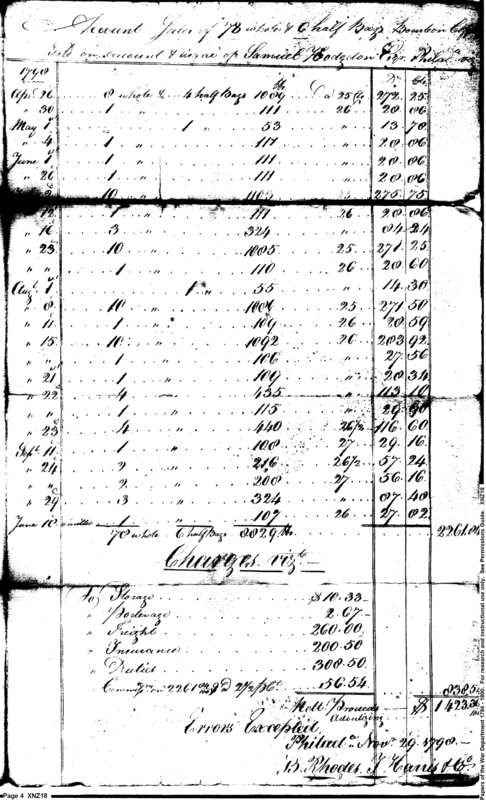 Account Sales of 78 whole & 6 half Bags Bourbon
Sold on account & of Samuel Hodgdon Esqr. Philada.
1798
Apl. 26 8 whole & 4 half Bags 1089 25 272 25
" 30 1 " 111 26 28 86
May 1 1 " 53 " 13 78
" 4 1 " 111 " 28 86
June 1 1 " 111 " 28 86
" 26 1 " 111 " 28 86
10 275 75
12 1 " 111 26 28 86
" 16 3 " 324 " 84 24
" 23 10 " 1085 25 271 25
" " 1 " 110 26 28 60
Augt. 1 1 " 55 " 14 30
" 8 10 " 25 271 50
" 11 1 " 109 26 28 59
" 15 10 " 1092 26 283 92
" " 1 " 106 " 27 56
" 21 1 " 109 " 28 34
" 22 4 " 435 " 113 10
" " 1 " 115 " 29 90
" 23 4 " 440 26½ 116 60
Sept. 11 1 " 108 27 29 16
" 24 2 " 216 26½ 57 24
" " 2 " 208 27 56 16
" 29 3 " 324 " 87 48
June 18 omitted 1 " 107 26 27 82
78 whole 6 half Bags 8829 2261.04
Charges vizt.
To Storage $10.33
" Porterage 2.67
" Freight 260.00
" Insurance 200.50
" Duties 308.50
Commission on 2261 @ 2½ pCt. 56.54
838.54
Nett Proceeds $1423
Errors Excepted
Philada. Novr. 29. 1798
B. Rhodes
Page 4 XNZ18
Papers of the War Department 1784 - 1800. For research and instructional use only. See Permissions Guide. XNZ18